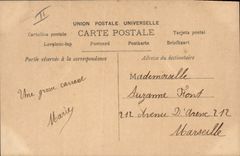 II
UNION POSTALE UNIVERSELLE
CARTE POSTALE
Cartolina postale
Tarjeta postal
Levelező-Lap
Postcard
Postkarte
Briefkaart
Partie réservée à la correspondance
Adresse du destinataire
Une grosse caresse
Mariey
Mademoiselle
Suzanne Hont
212 Avenue D'Arenc 212
Marseille